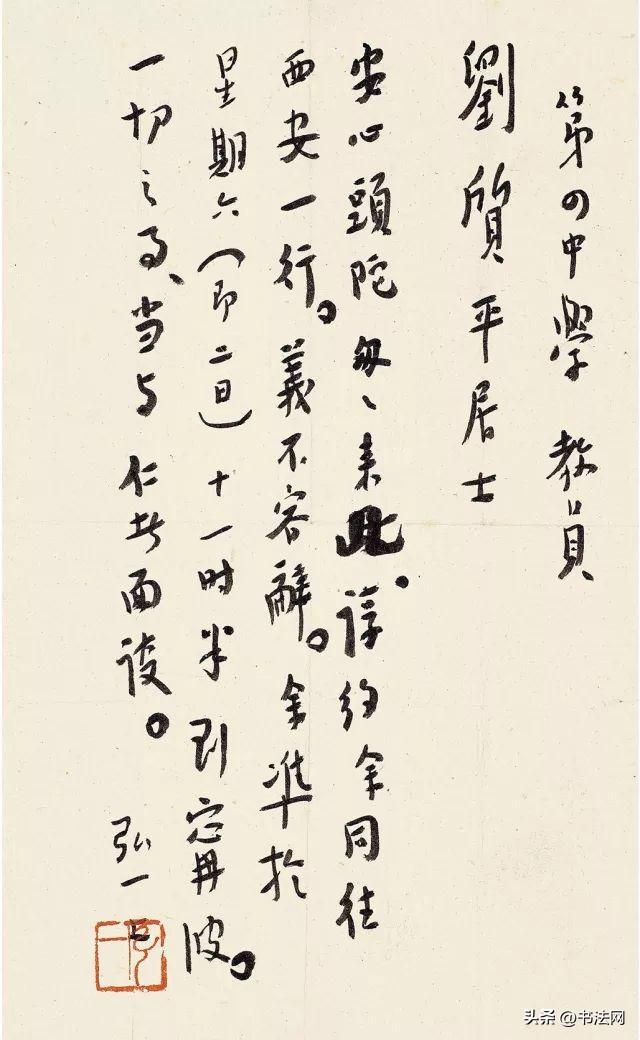 第四中學 教員
劉質平居士
安心頭陀匆匆来此。諄约余同往
西安一行。義不容辭。余準於
星期六（即二日）十一时半到寧波。
一切之事、当与仁者面谈。
弘一
头条 @书法网